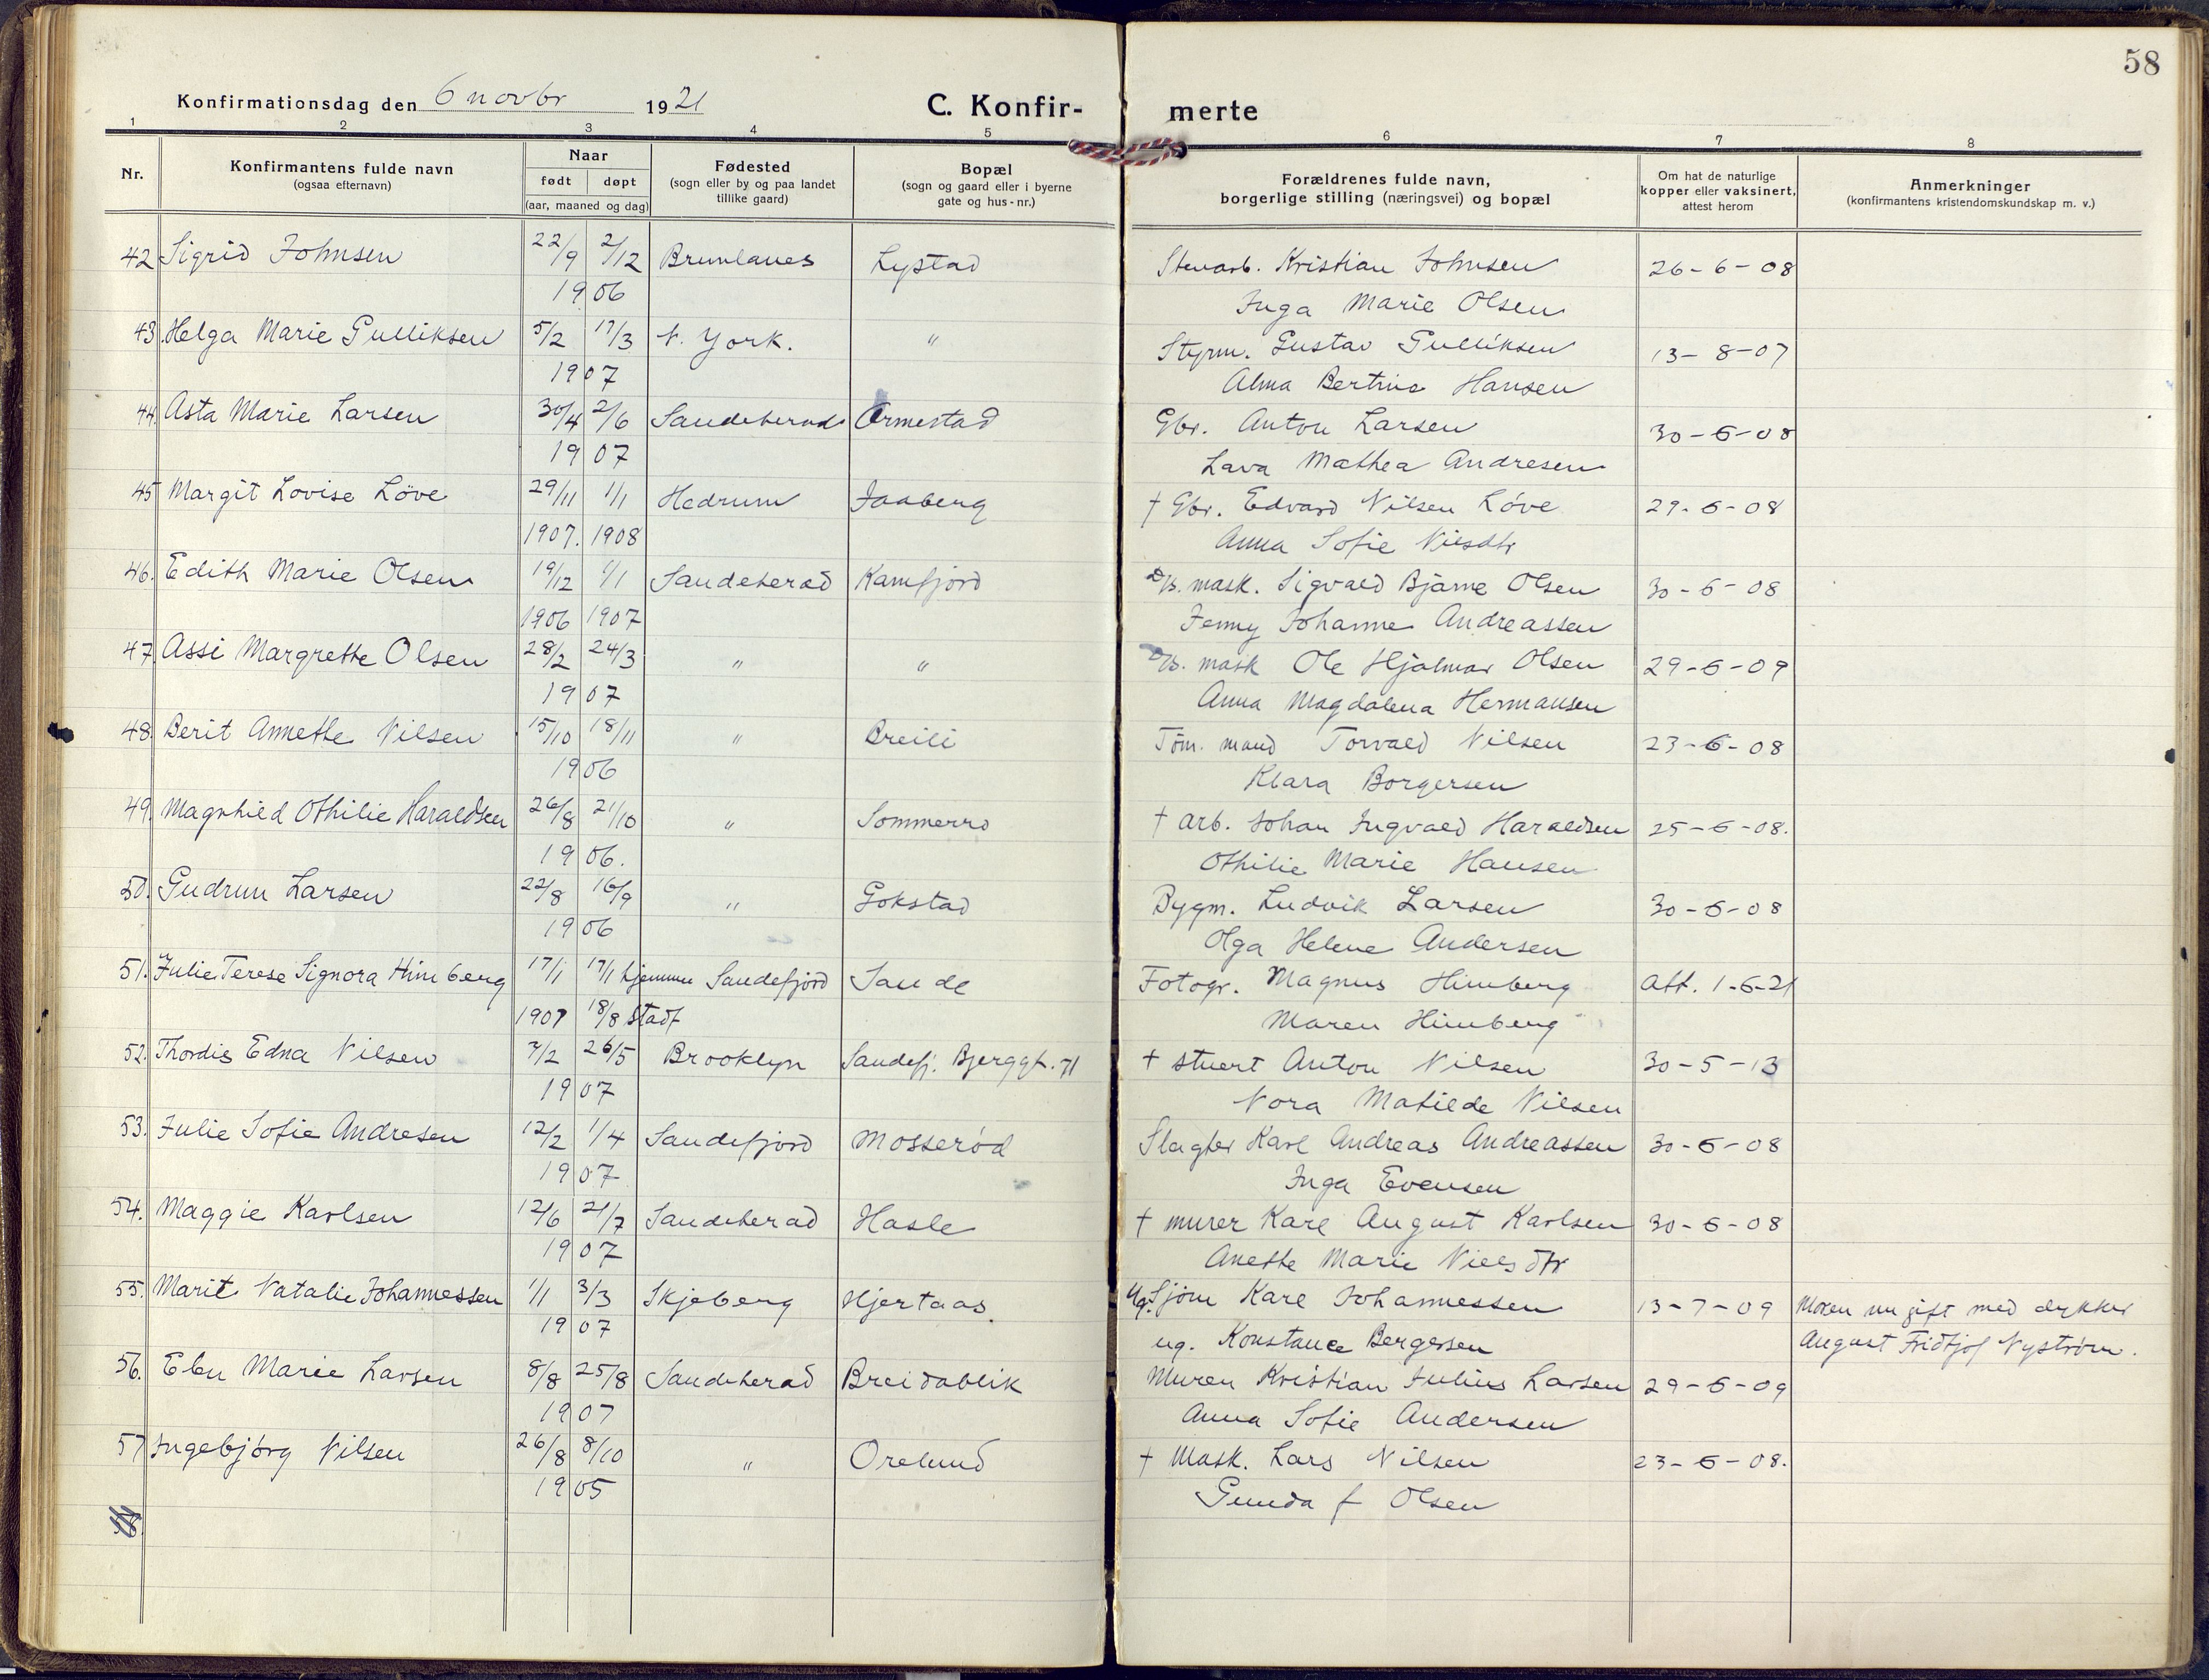 58
Konfirmationsdag den 6 novbr 1921
C. Konfirmerte
1 2 3 4 5 6 7 8
Nr. Konfirmantens fulde navn (ogsaa efternavn) Naar født døpt (aar, maaned og dag) Fødested (sogn eller by og paa landet tillike gaard) Bopæl (sogn og gaard eller i byerne gate og hus-nr.) Forældrenes fulde navn, borgerlige stilling (næringsvei) og bopæl Om hat de naturlige kopper eller vaksinert, attest herom Anmerkninger (konfirmantens kristendomskundskap m. v.)
42 Sigrid Johnsen 22/9 2/12 Brunlanes Lystad Stenarb. Kristian Johnsen 26-6-08
1906 Inga Marie Olsen
43. Helga Marie Gulliksen 5/2 17/3 N. York. " Styrm. Gustav Gulliksen 13-8-07
1907 Alma Bertine Hansen
44. Asta Marie Larsen 30/4 2/6 Sandeherad Ormestad Gbr. Anton Larsen 30-6-08
1907 Lava Mathea Andresen
45 Margit Lovise Löve 29/11 1/1 Hedrum Jaaberg † Gbr. Edvard Nilsen Löve 29-6-08
1907. 1908 Anna Sofie Nilsdtr
46. Edith Marie Olsen 19/12 1/1 Sandeherad Kamfjord mask. Sigvald Bjarne Olsen 30-6-08
1906 1907 Jenny Johanne Andreassen
47. Assi Margrethe Olsen 28/2 24/3 " " mask Ole Hjalmar Olsen 29-6-09
1907 Anna Magdalena Hermansen
48. Berit Annette Nilsen 15/10 18/11 " Breili Töm. mand Torvald Nilsen 23-6-08
1906 Klara Borgersen
49. Magnhild Othilie Haraldsen 26/8 21/10 " Sommerro † arb. Johan Ingvald Haraldsen 25-6-08.
1906. Othilie Marie Hansen
50. Gudrun Larsen 22/8 16/9 " Gokstad Bygm. Ludvik Larsen 30-6-08
1906 Olga Helene Andersen
51. Julie Terese Signora Himberg 17/1 17/1 hjemme Sandefjord Sande Fotogr. Magnus Himberg Att. 1-6-21
1907 18/8 stadf Maren Himberg
52. Thordis Edna Nilsen 7/2 26/5 Brooklyn Sandefj. Bjerggt. 71 † stuert Anton Nilsen 30-5-13
1907 Nora Matilde Nilsen
53. Julie Sofie Andresen 12/2 1/4 Sandefjord Mosserød Slagter Karl Andreas Andreassen 30-6-08
1907 Inga Evensen
54. Maggie Karlsen 12/6 21/7 Sandeherad Hasle † murer Karl August Karlsen 30-6-08
1907 Anette Marie Nielsdtr
55. Marit Natalie Johannessen 1/1 3/3 Skjeberg Hjertaas. Ug. Sjöm Karl Johannessen 13-7-09 Moren nu gift med dykker
1907 ug. Konstance Bergersen August Fridtjof Nyström.
56. Elen Marie Larsen 8/8 25/8 Sandeherad Breidablik Murer Kristian Julius Larsen 29-6-09
1907 Anna Sofie Andersen
57 Ingebjörg Nilsen 26/8 8/10 " Orelund † Mask. Lars Nilsen 23-6-08.
1905 Gunda f Olsen